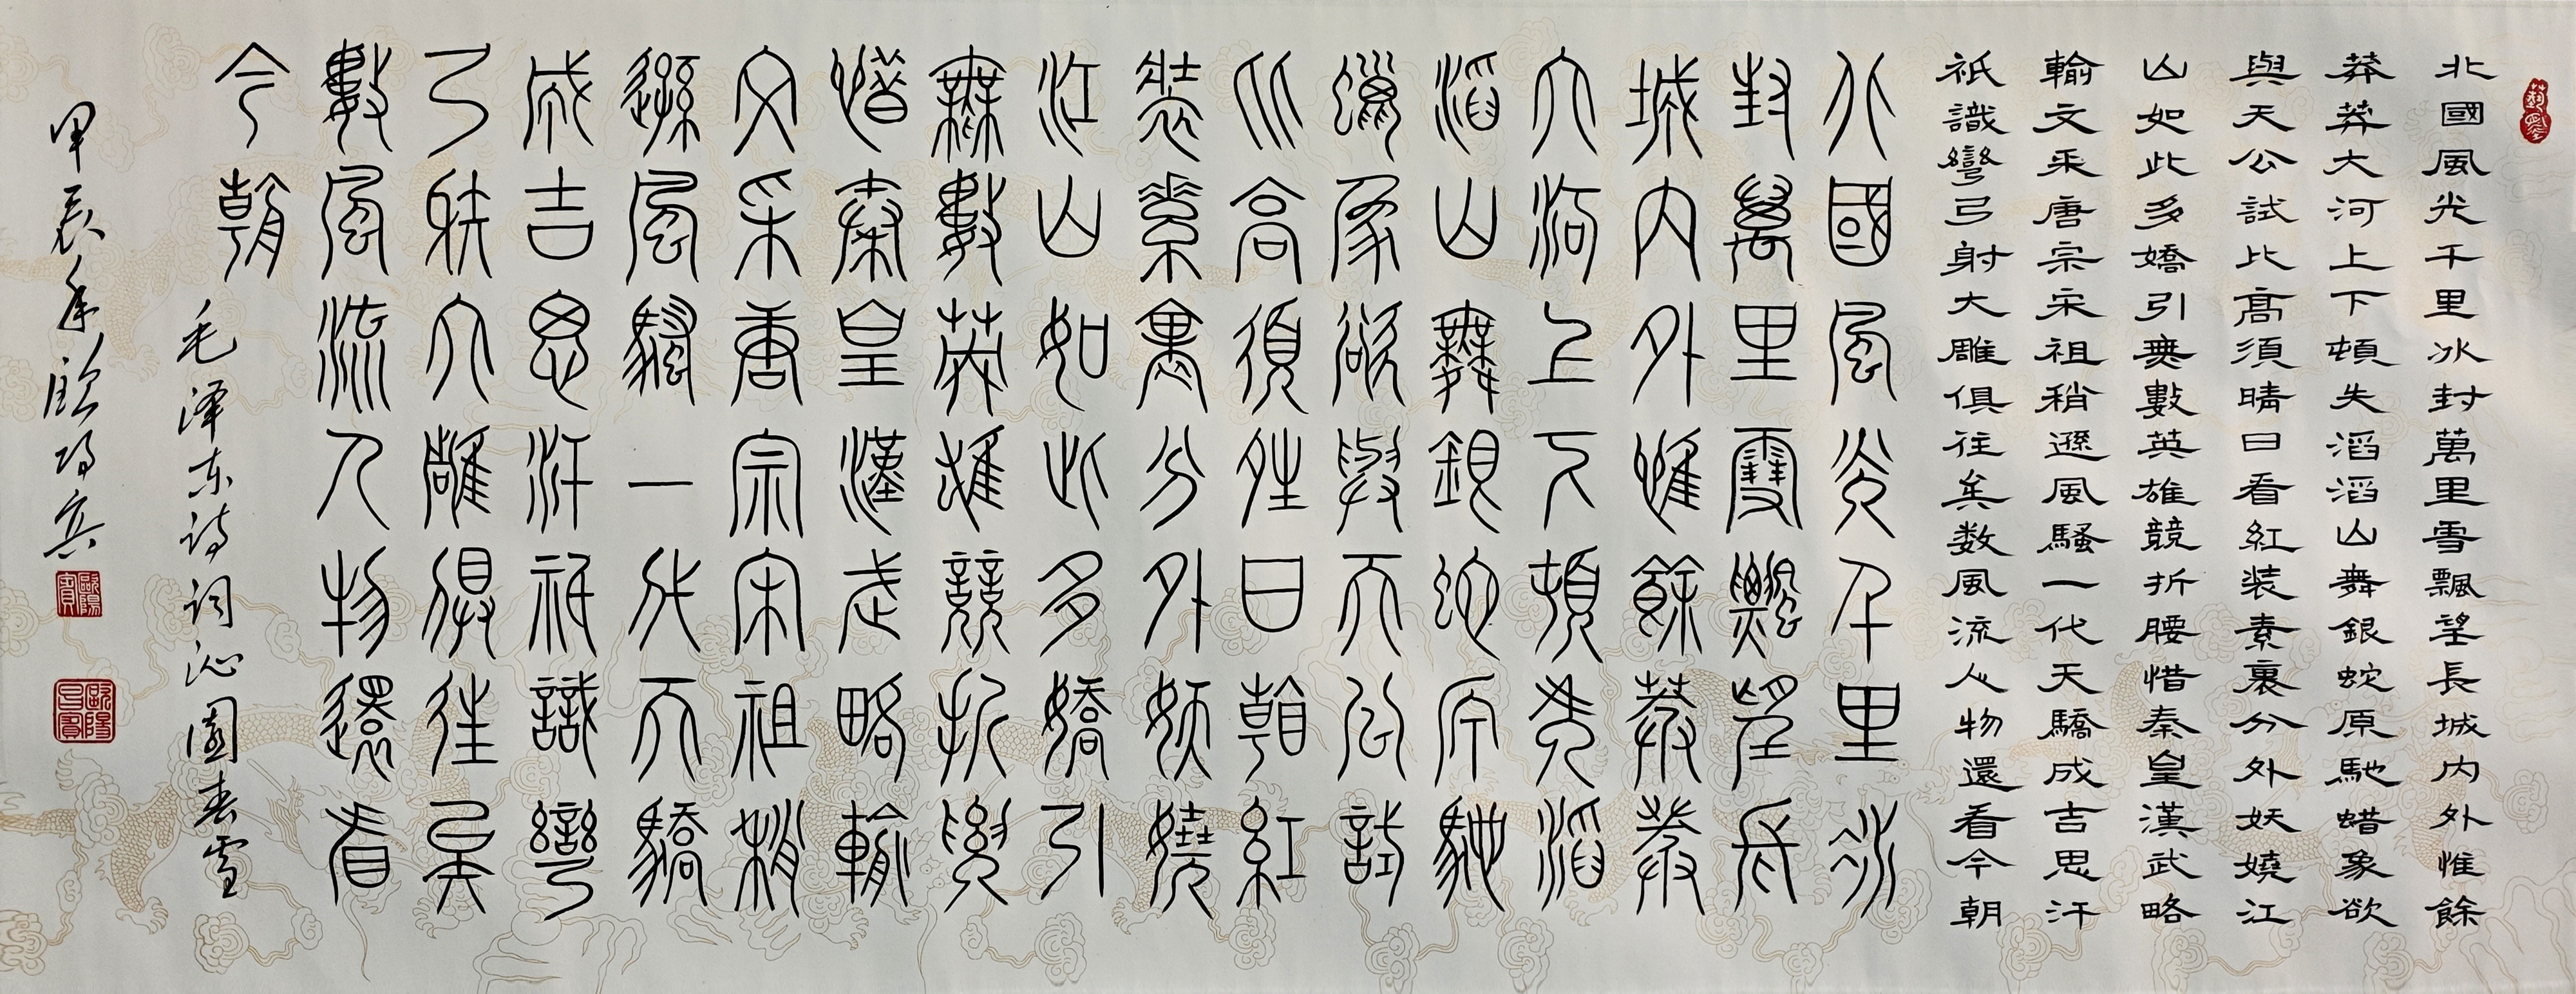 北國風光千里冰封萬里雪飄望長城内外惟餘
莽莽大河上下頓失滔滔山舞銀蛇原馳蜡象欲
與天公試比高須晴日看紅装素裹分外妖嬈江
山如此多嬌引無數英雄競折腰惜秦皇漢武略
輸文采唐宗宋祖稍遜風騷一代天驕成吉思汗
祇識彎弓射大雕俱往矣数風流人物還看今朝
北國風光千里冰
封萬里雪飄望長
城内外惟餘莽莽
大河上下頓失滔
滔山舞銀蛇原馳
蠟象欲與天公試
比高須晴日看紅
装素裹分外妖嬈
江山如此多嬌引
無數英雄競折腰
惜秦皇漢武略輸
文采唐宗宋祖稍
遜風騷一代天驕
成吉思汗祇識彎
弓射大雕俱往矣
數風流人物還看
今朝
毛泽东诗词沁園春雪
甲辰年欧阳